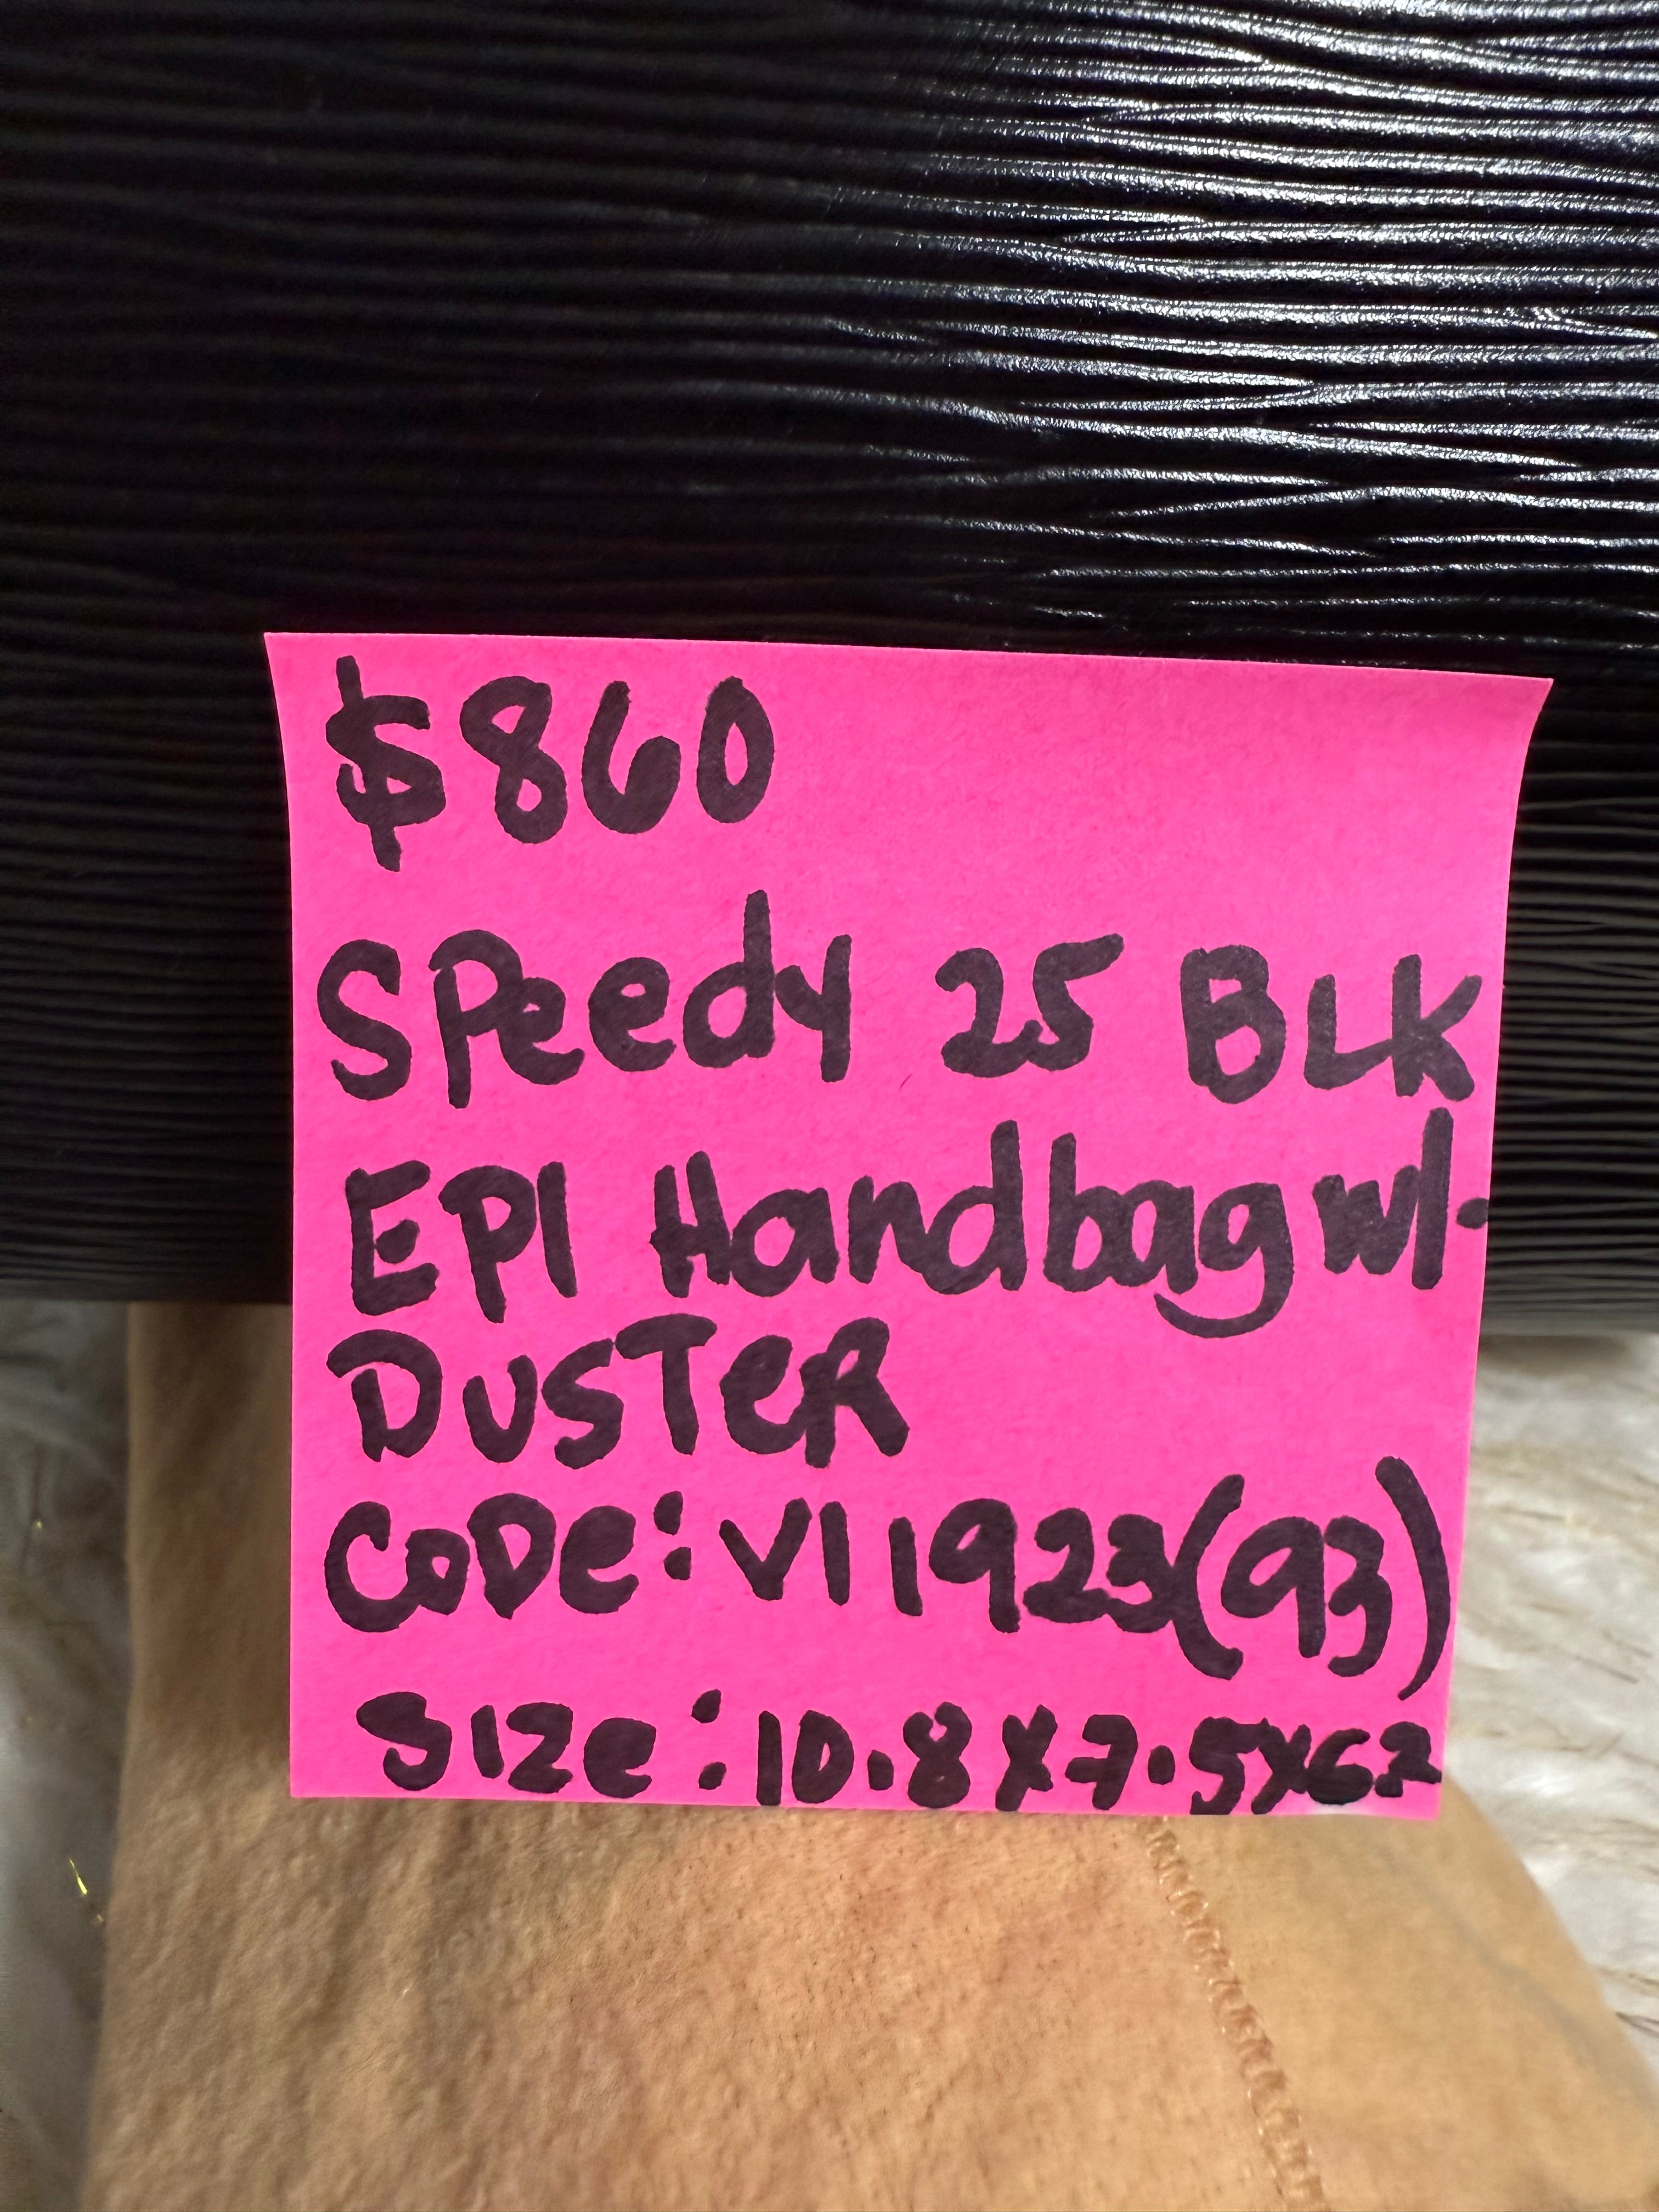 $860
Speedy 25 BLK
EPI Handbag w/.
DUSTER
CODE: VI1923(93)
SIZE: 10.8X7.5X6.2